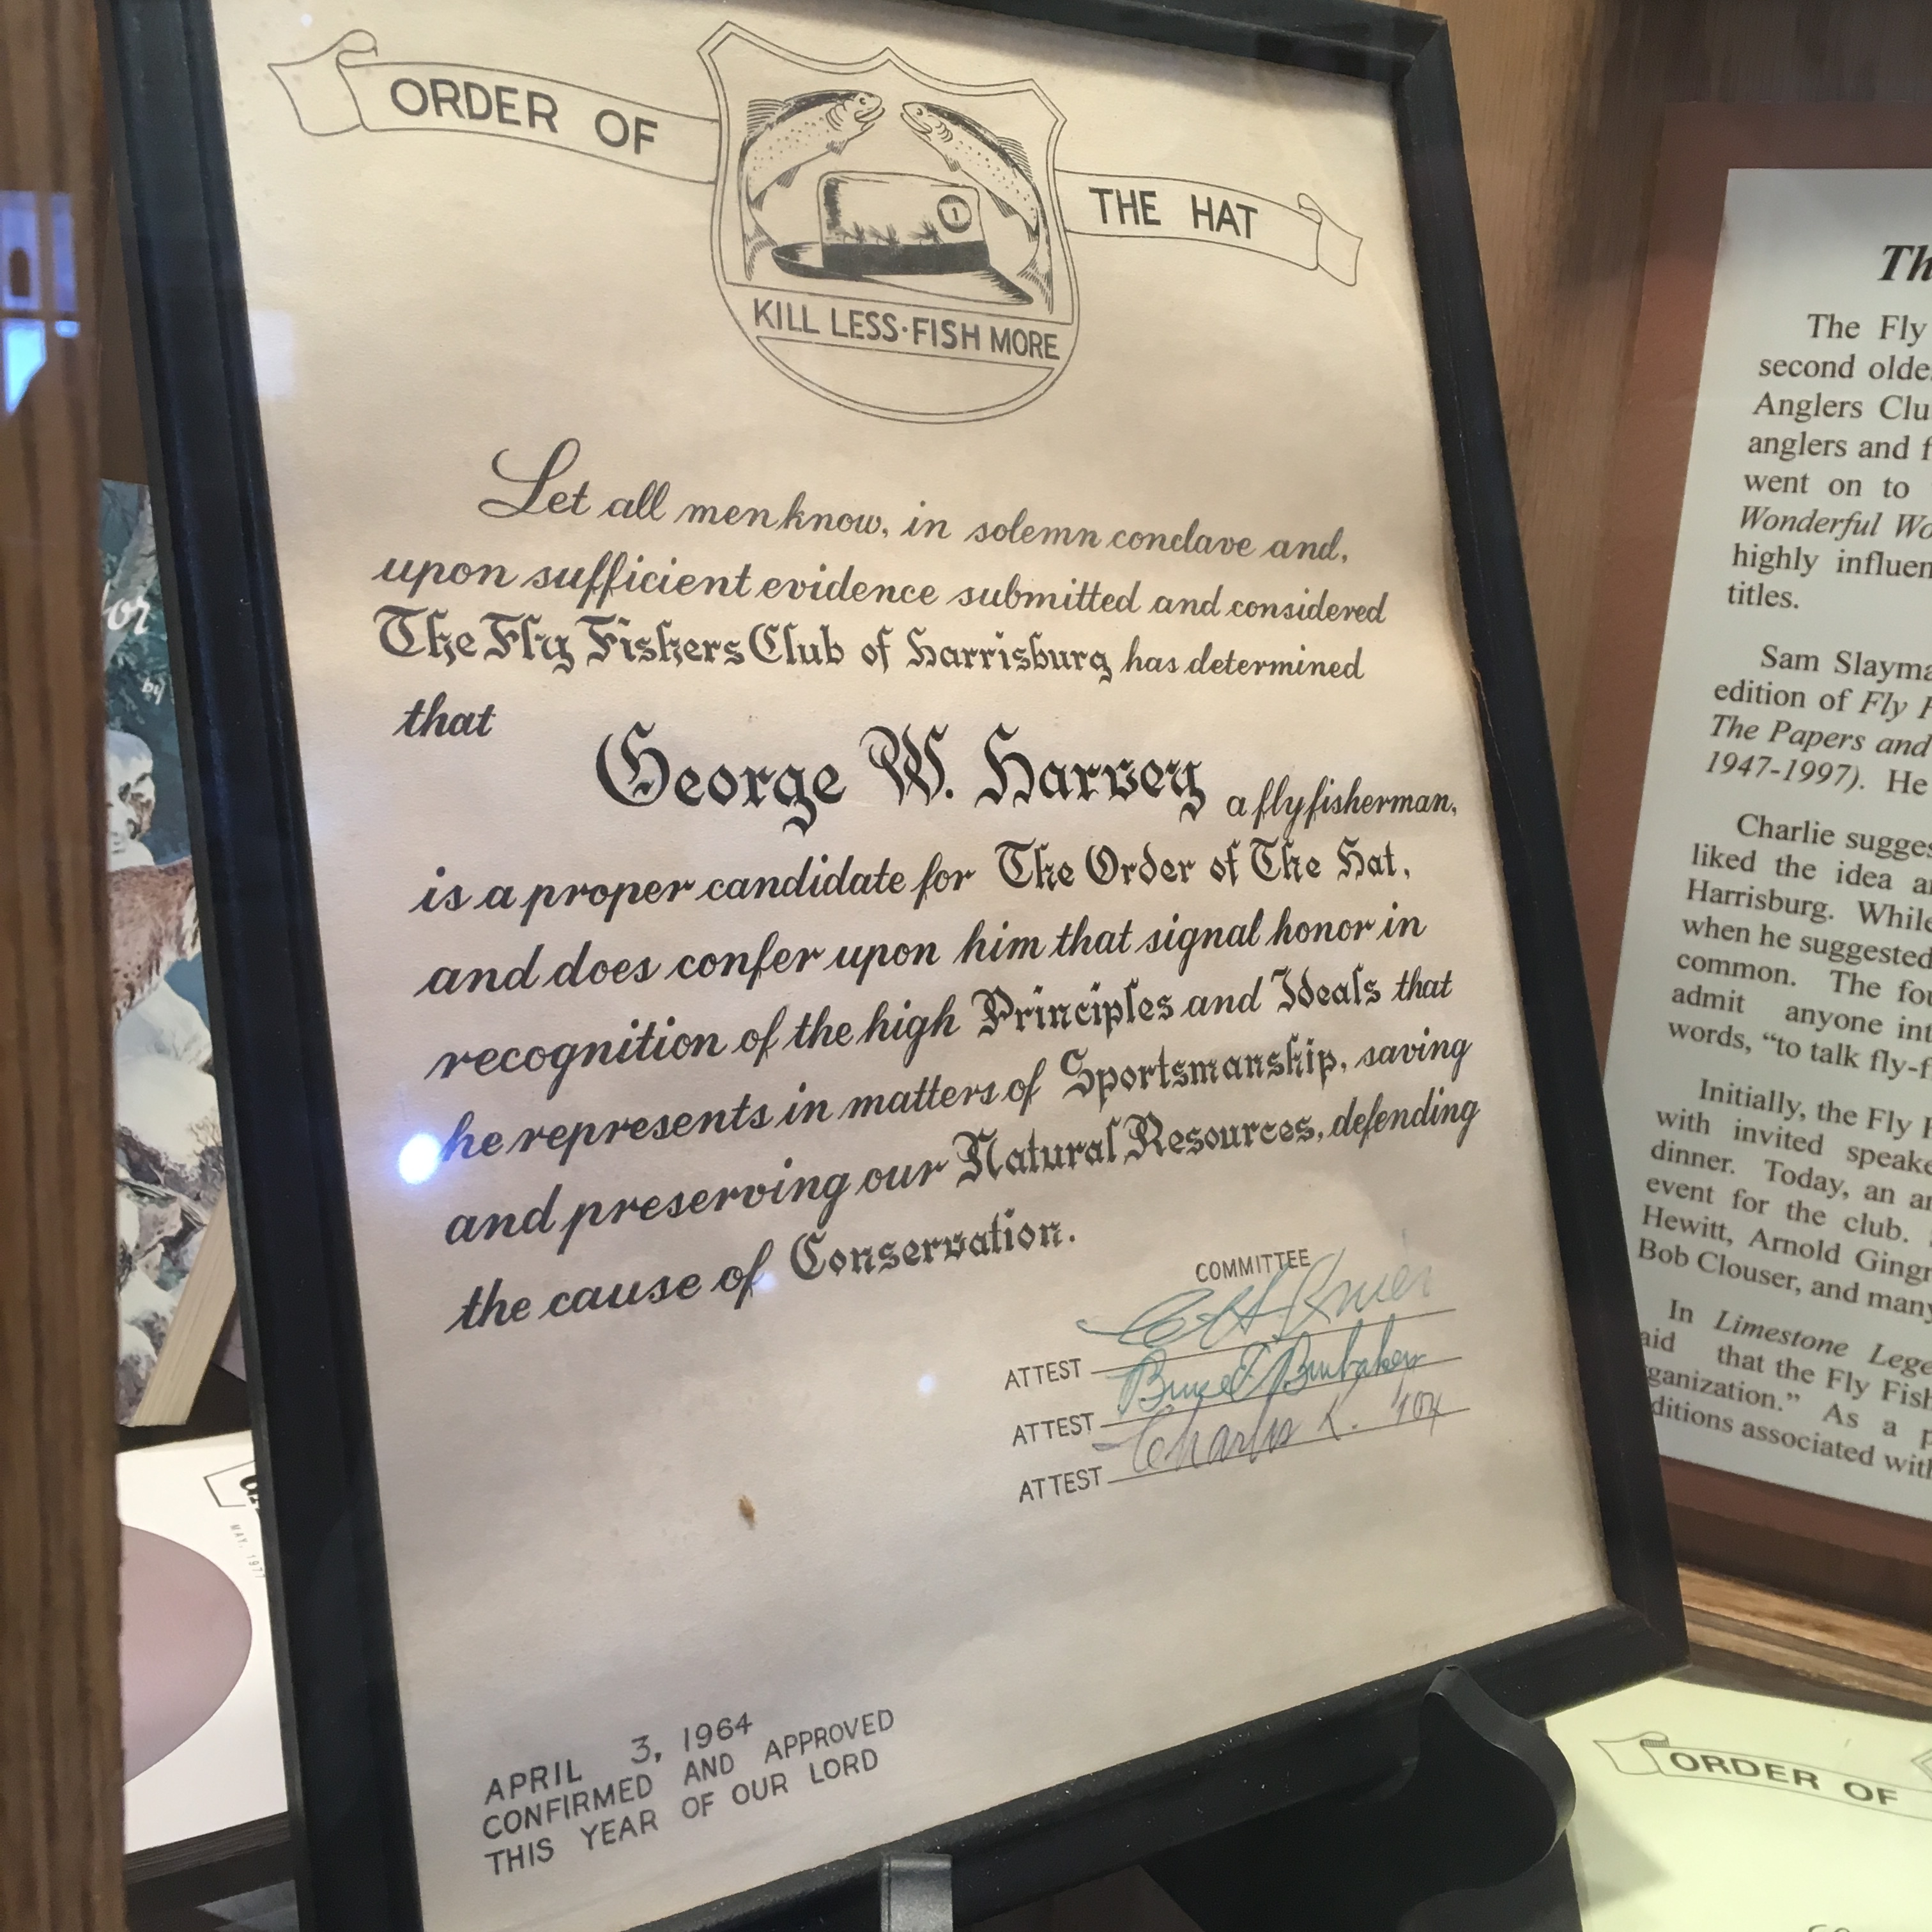 ORDER OF
THE HAT
1
KILL LESS·FISH MORE
Let all men know, in solemn conclave and,
upon sufficient evidence submitted and considered
The Fly Fishers Club of Harrisburg has determined
that
George W. Harvey a fly fisherman,
is a proper candidate for The Order of The Hat,
and does confer upon him that signal honor in
recognition of the high Principles and Ideals that
he represents in matters of Sportsmanship, saving
and preserving our Natural Resources, defending
the cause of Conservation.
COMMITTEE
ATTEST
ATTEST Bruce E Brubaker
ATTEST Charles K. Fox
APRIL 3, 1964
CONFIRMED AND APPROVED
THIS YEAR OF OUR LORD
or
by
MAY, 1977
The Fly
second
Anglers
anglers and
went on to
Wonderful
highly
titles.
Sam
edition of Fly
The Papers and
1947-1997). He
Charlie
liked the idea
Harrisburg. While
when he suggested
common. The
admit anyone
words, “to talk
Initially, the Fly
with invited
dinner. Today, an
event for the club.
Hewitt, Arnold
Bob Clouser, and many
In Limestone
that the Fly
As a
associated with
ORDER OF